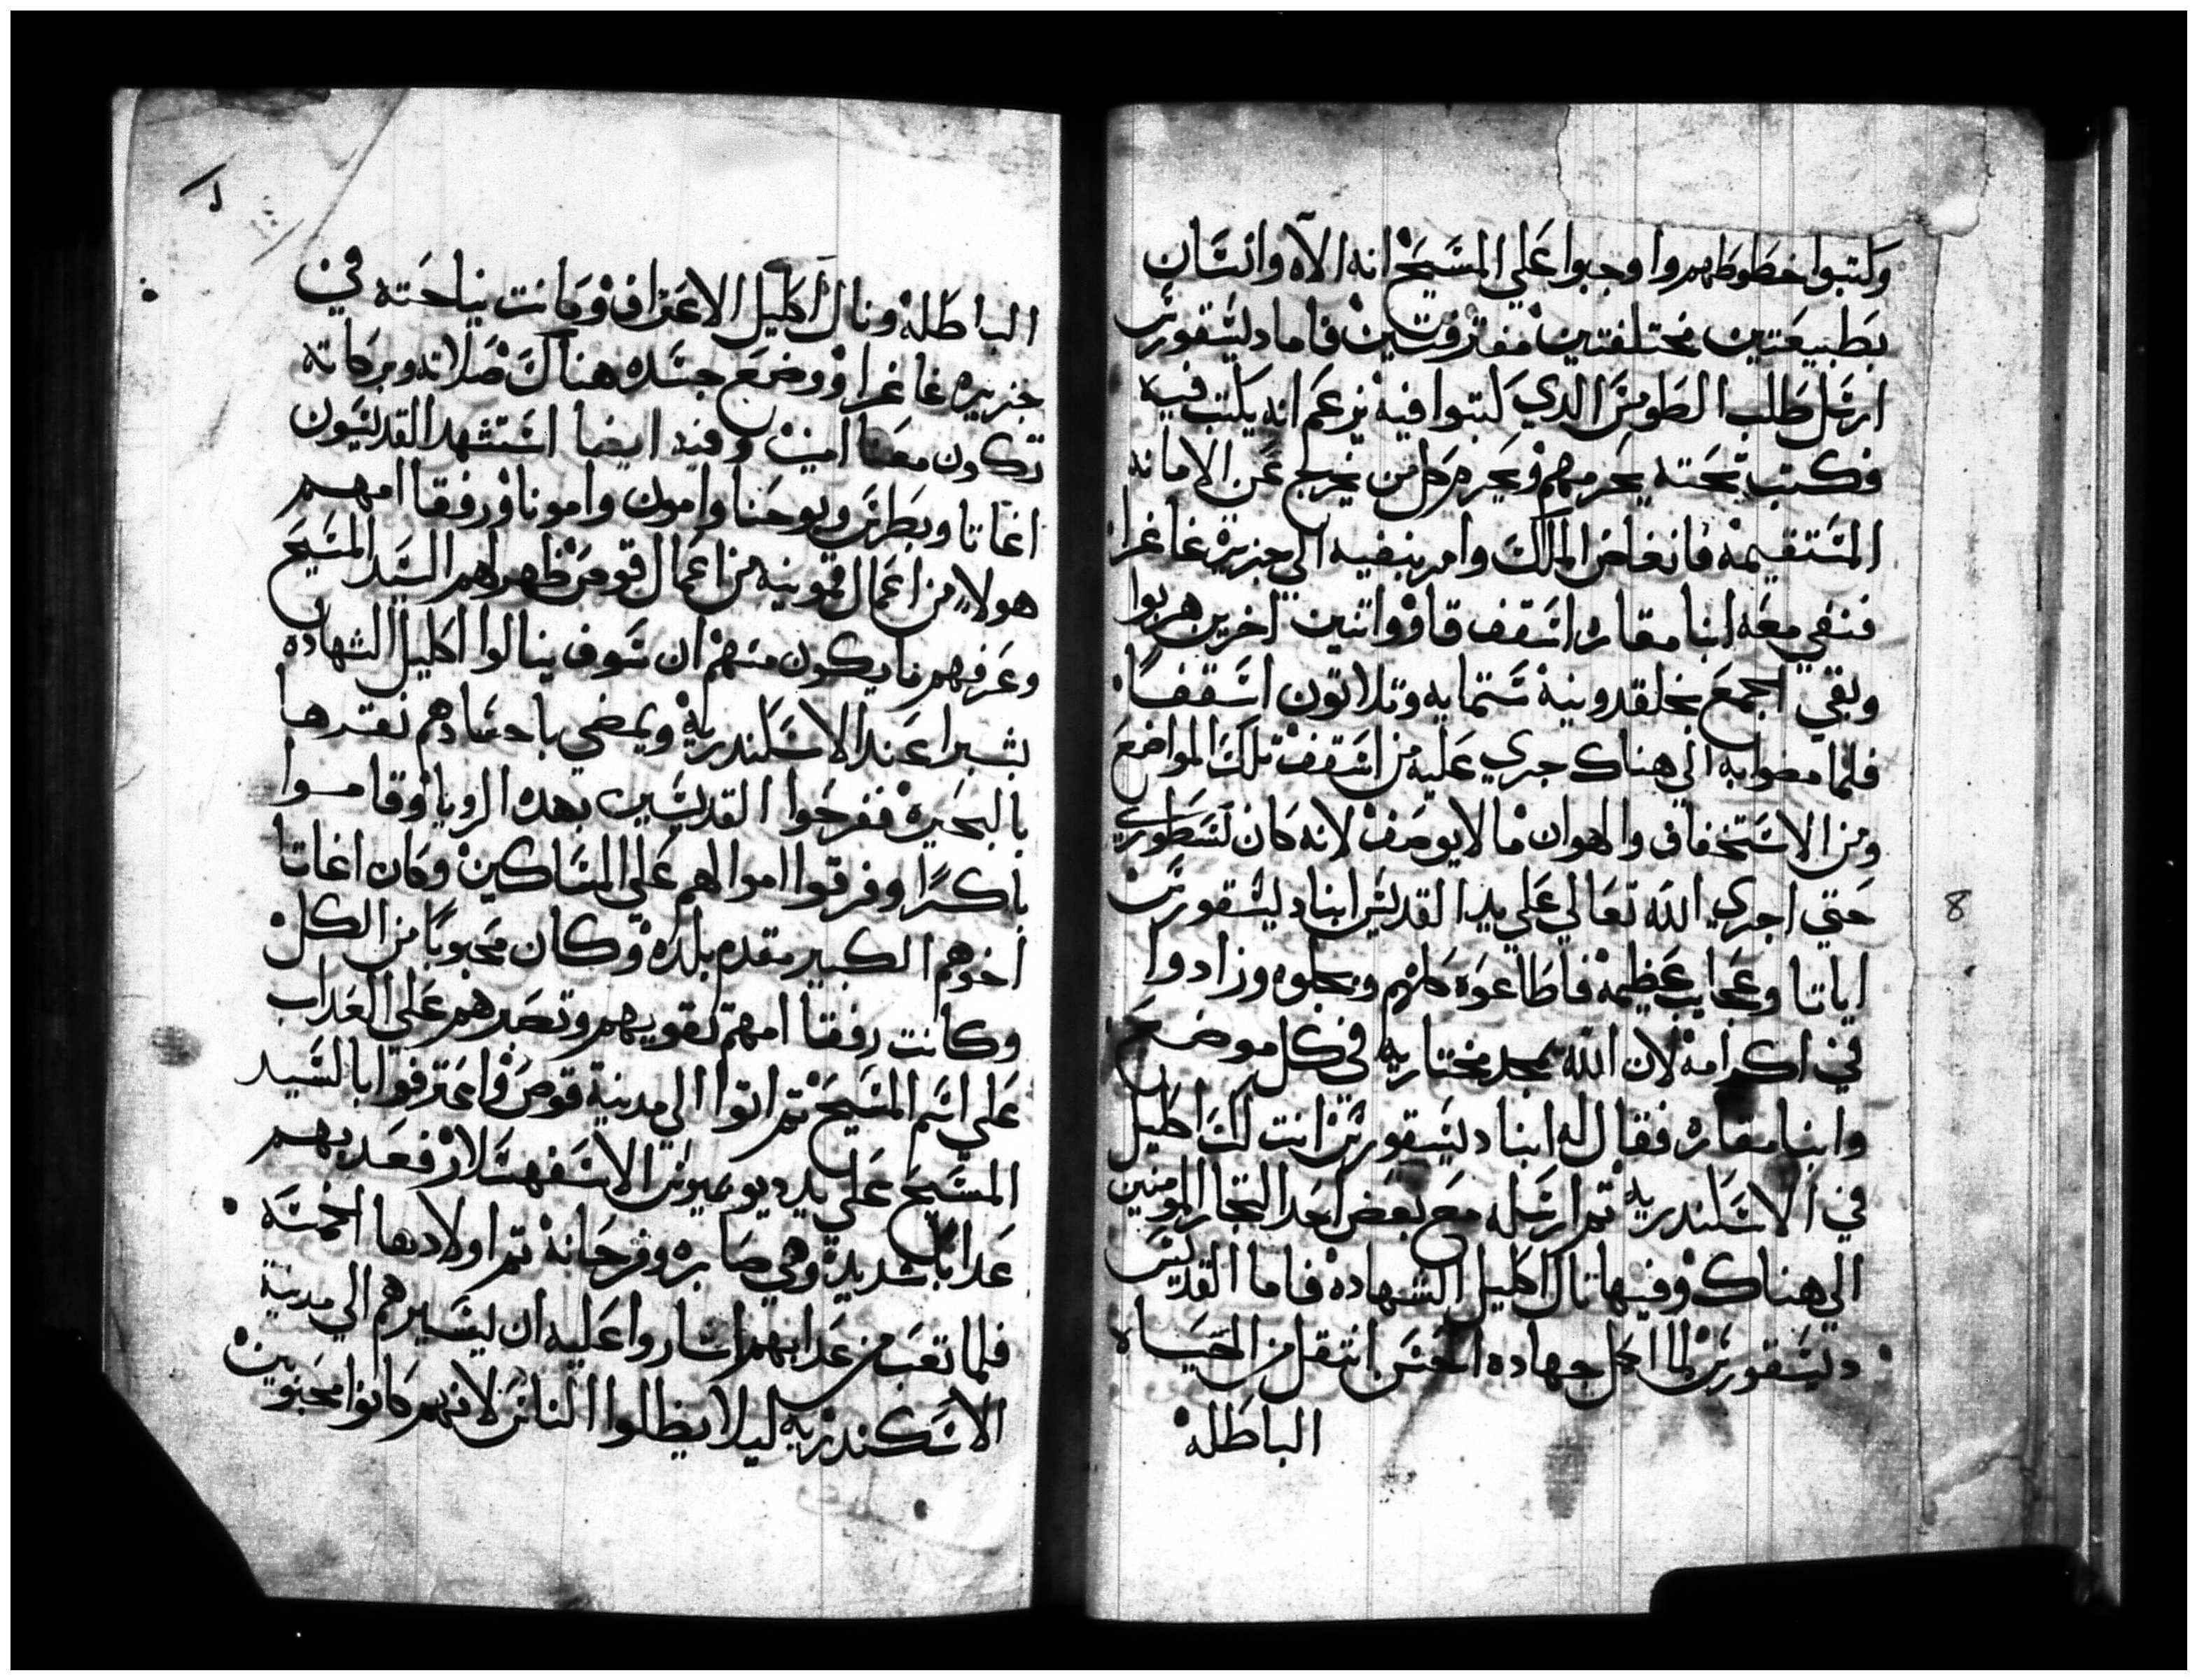 وكتبوا خطوطهم واوجبوا علي المسيح انه الآه وانسان
بطبيعتين مختلفتين مفترقتين فاما ديسقورس
ارسل طلب الطومس الدي كتبوا فيه يزعم انه يكتب فيه
فكتب تحته يحرمهم ويحرم كل من يخرج عن الامانه
المستقيمه فانغاض الملك وامر بنفيه الي جزيرة غاغرا
فنفي معه انبا مقاره اسقف قاو واتنين اخرين هربوا
وبقي المجمع بخلقدونية ستمايه وتلاتون اسقفاً
فلما مضوا به الي هناك جري عليه من اسقف تلك المواضع
ومن الاستخفاف والهوان ما لا يوصف لانه كان نسطوري
حتي اجري الله تعالي علي يد القديس انبا ديسقورس
اياتا وعجايب عظيمه فاطاعوه كلهم وبجلوه وزادوا
في اكرامه لان الله يمجد مختاريه في كل موضع
وانبا مقاره فقال له انبا ديسقورس انت لك اكليل
في الاسكندريه تم ارسله مع بعض احد التجار المومنين
الي هناك وفيها نال اكليل الشهاده فاما القديس
ديسقورس لما اكمل جهاده الحسن انتقل من الحياه
الباطله
8
الباطله ونال اكليل الاعتراف وكانت نياحته في
جزيره غاغرا ووضع جسده هناك صلاته وبركاته
تكون معنا امين وفيه ايضا استشهد القديسون
اغاتا وبطرس ويوحنا وامون وامونا ورفقا امهم
هولاء من اعمال قمونيه من اعمال قوص ظهر لهم السيد المسيح
وعرفهم ما يكون منهم ان سوف ينالوا اكليل الشهاده
بشبرا عند الاسكندرية ويمضي باجسادهم نقرها
بالبحيرة ففرحوا القديسين بهده الرويا وقاموا
باكرًا وفرقوا اموالهم علي المساكين وكان اغاتا
اخوهم الكبير مقدم بلده وكان محبوبًا من الكل
وكانت رفقا امهم تقويهم وتصبرهم علي العداب
علي اسم المسيح تم اتوا الي مدينة قوص واعترفوا بالسيد
المسيح علي يد ديونيسيوس الاسفهسلار فعدبهم
عدابًا شديدة وهي صابره وفرحانة تم اولادها الخمسه
فلما تعب من عدابهم اشاروا عليه ان يسيرهم الي مدينة
الاسكندريه ليلا يظلوا الناس لانهم كانوا محبوبين